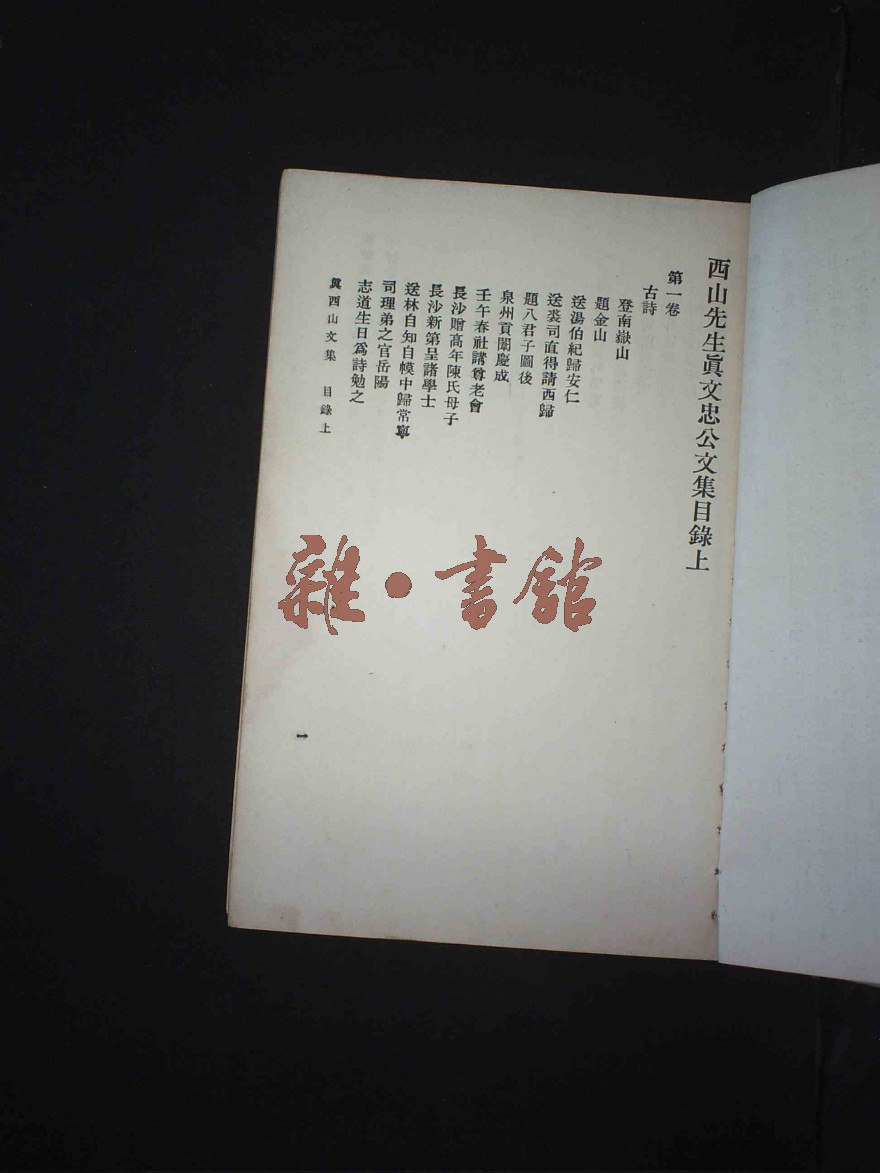 西山先生眞文忠公文集目錄上
第一卷
古詩
登南嶽山
題金山
送湯伯紀歸安仁
送裘司直得請西歸
題八君子圖後
泉州貢闈慶成
壬午春社講尊老會
長沙贈高年陳氏母子
長沙新第呈諸學士
送林自知自幙中歸常寧
司理弟之官岳陽
志道生日爲詩勉之
眞西山文集 目錄上
一
雜·書館